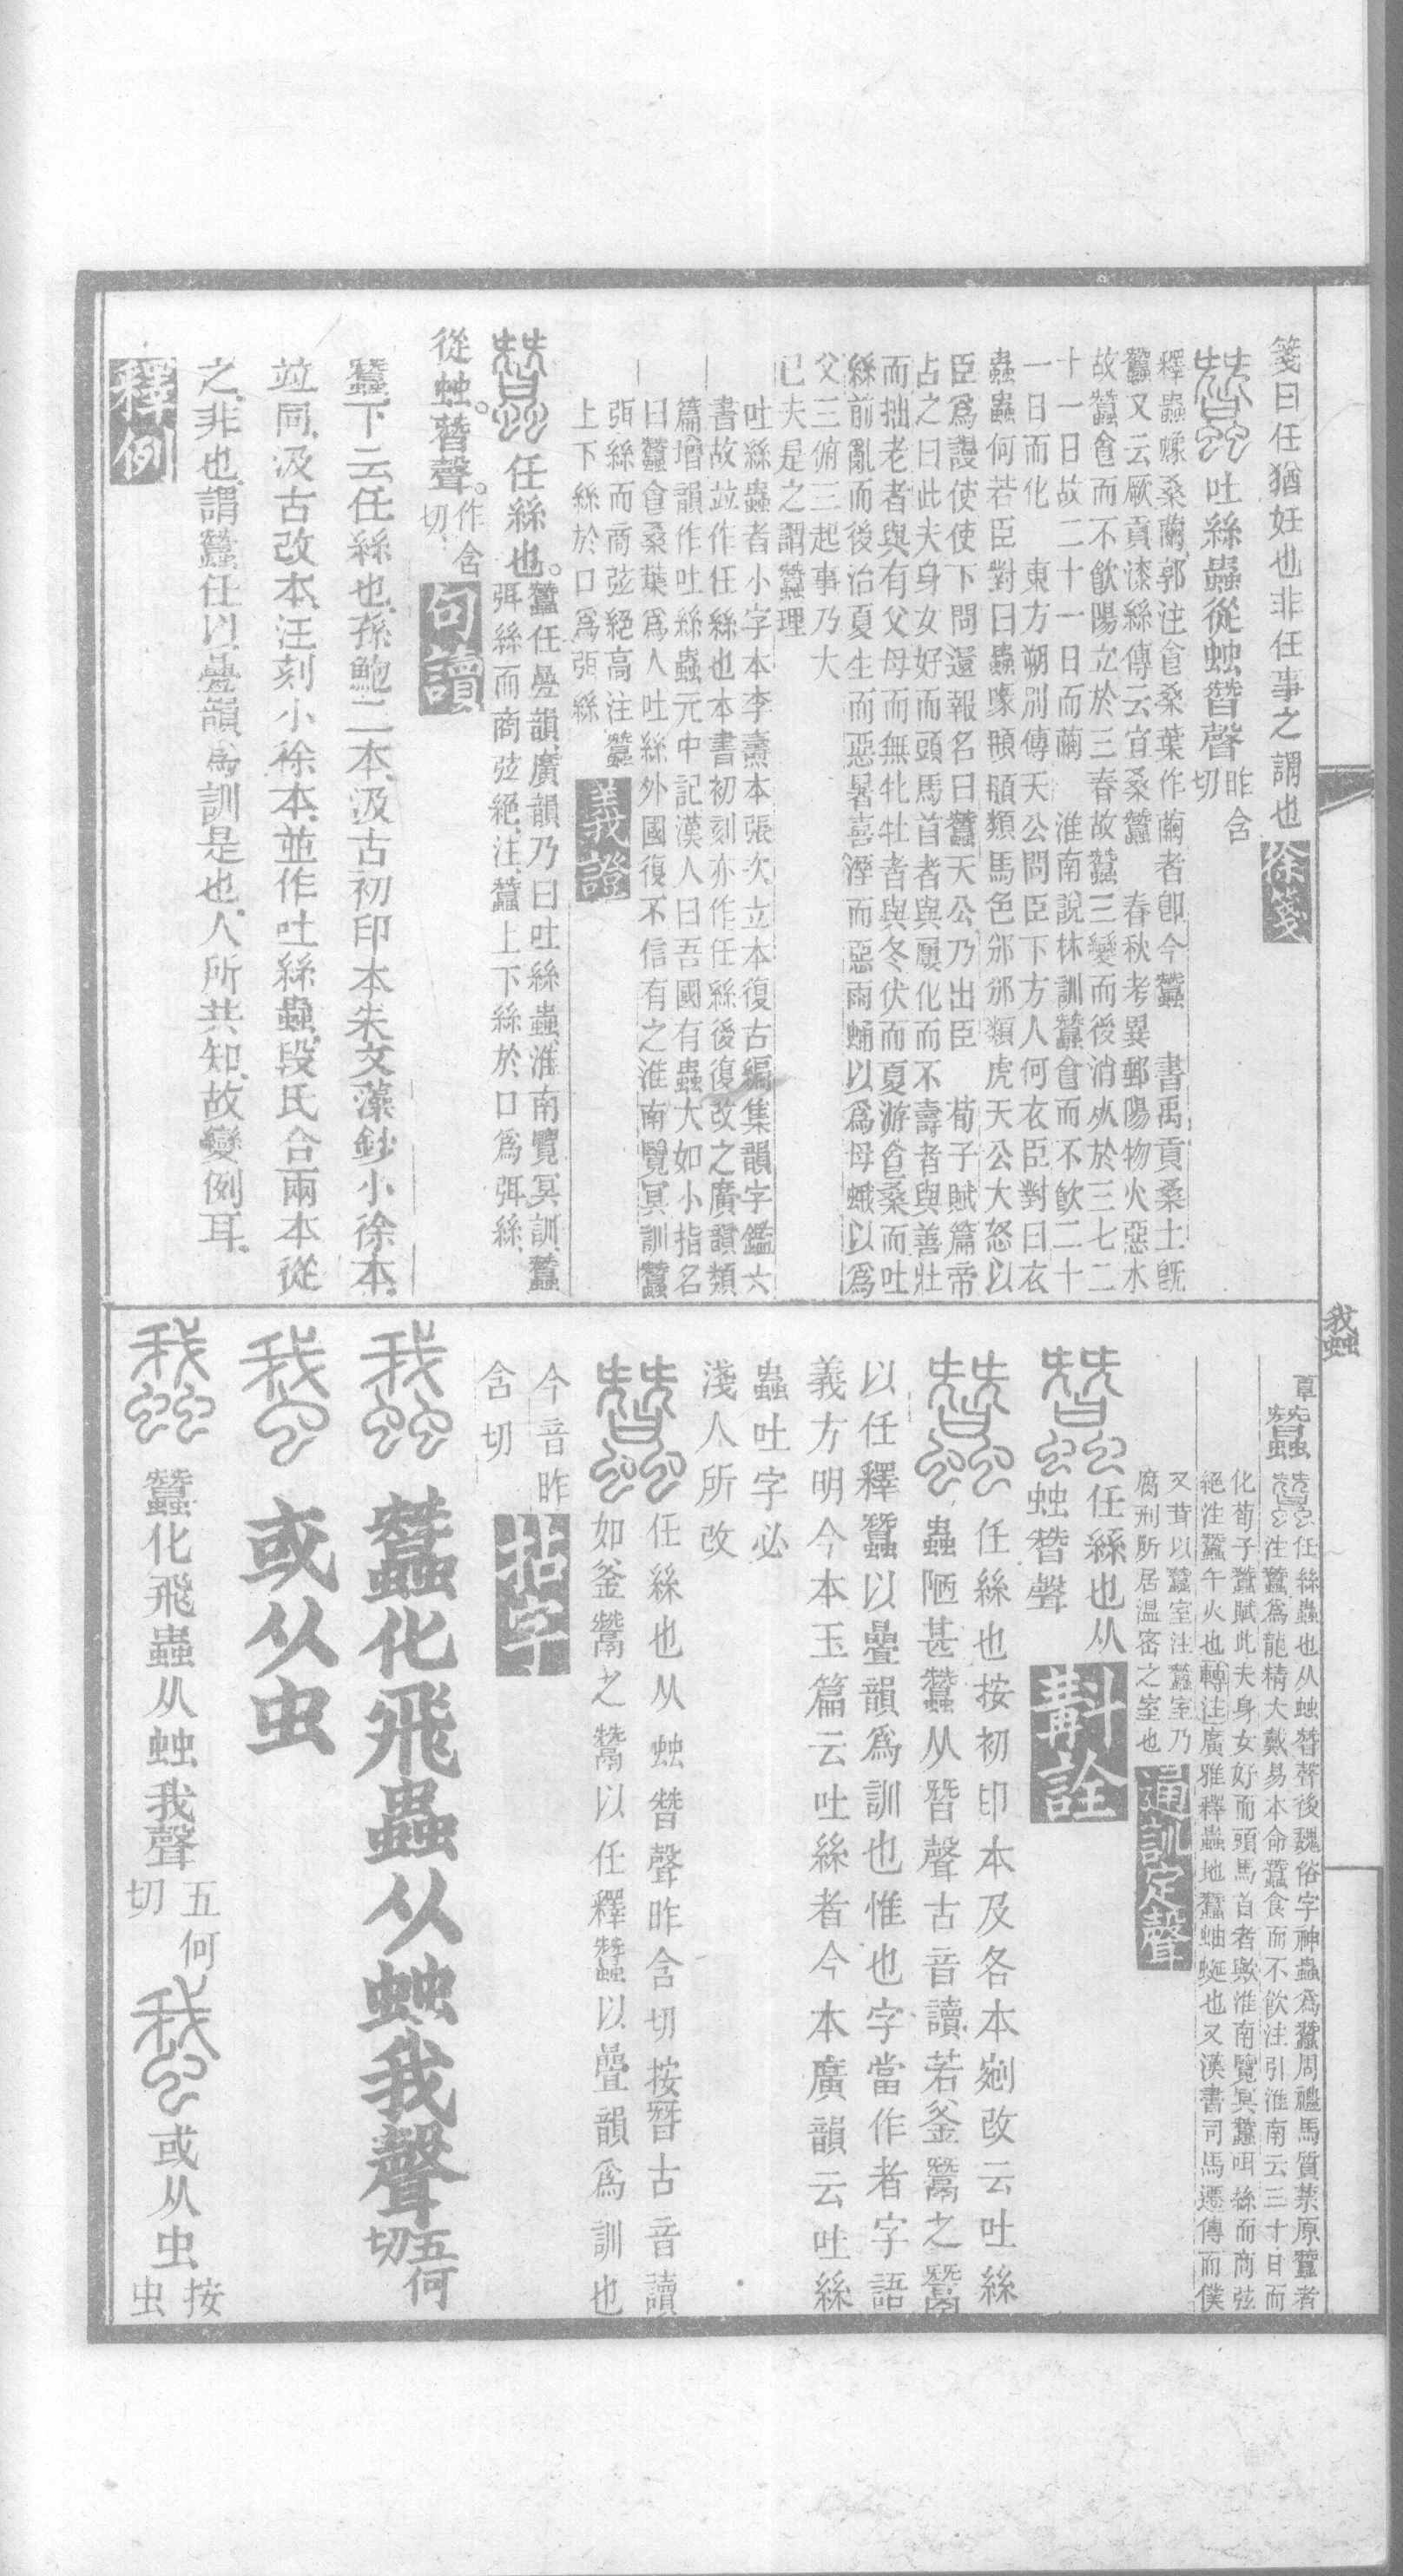 箋曰任猶妊也非任事之謂也徐箋
吐絲蟲從䖵朁聲昨含切
釋蟲蟓桑繭郭注食桑葉作繭者卽今蠶　書禹貢桑土旣
蠶又云厥貢漆絲傳云宜桑蠶　春秋考異郵陽物火惡水
故蠶食而不飮陽立於三春故蠶三變而後消死於三七二
十一日故二十一日而繭　淮南說林訓蠶食而不飮二十
一日而化　東方朔別傳天公問臣下方人何衣臣對曰衣
蟲蟲何若臣對曰蟲喙頿頿類馬色邠邠類虎天公大怒以
臣爲謾使使下問還報名曰蠶天公乃出臣　荀子賦篇帝
占之曰此夫身女好而頭馬首者與屢化而不壽者與善壯
而拙老者與有父母而無牝牡者與冬伏而夏游食桑而吐
絲前亂而後治夏生而惡暑喜溼而惡雨蛹以爲母蛾以爲
父三俯三起事乃大
已夫是之謂蠶理
吐絲蟲者小字本李燾本張次立本復古編集韻字鑑六
書故竝作任絲也本書初刻亦作任絲後復改之廣韻類
篇增韻作吐絲蟲元中記漢人曰吾國有蟲大如小指名
曰蠶食桑葉爲人吐絲外國復不信有之淮南覽冥訓蠶
弭絲而商弦絕高注蠶
上下絲於口爲弭絲
義證
任絲也。蠶任疊韻、廣韻乃曰吐絲蟲、淮南覽冥訓、蠶
弭絲而商弦絕、注、蠶上下絲於口爲弭絲、
從䖵。朁聲。作含切、句讀
蠶下云、任絲也、孫鮑二本、汲古初印本朱文藻鈔小徐本、
竝同、汲古改本、汪刻小徐本、並作吐絲蟲、段氏合兩本從
之、非也、謂蠶任以疊韻爲訓是也、人所共知、故變例耳、
釋例
我䖵
蠶
任絲蟲也从䖵朁聲後魏俗字神蟲爲蠶周禮馬質禁原蠶者
注蠶爲龍精大戴易本命蠶食而不飮注引淮南云三十日而
化荀子蠶賦此夫身女好而頭馬首者歟淮南覽冥蠶咡絲而商弦
絕注蠶午火也轉注廣雅釋蟲地蠶蚰蜒也又漢書司馬遷傳而僕
又茸以蠶室注蠶室乃
腐刑所居温密之室也
通訓定聲
任絲也从
䖵朁聲
斠詮
任絲也按初印本及各本剜改云吐絲
蟲陋甚蠶从朁聲古音讀若釜鬵之鬵
以任釋蠶以疊韻爲訓也惟也字當作者字語
義方明今本玉篇云吐絲者今本廣韻云吐絲
蟲吐字必
淺人所改
任絲也从䖵朁聲昨含切按朁古音讀
如釜鬵之鬵以任釋蠶以疊韻爲訓也
今音昨
含切
拈字
蠶化飛蟲从䖵我聲五何切
或从虫
蠶化飛蟲从䖵我聲五何切
或从虫按虫